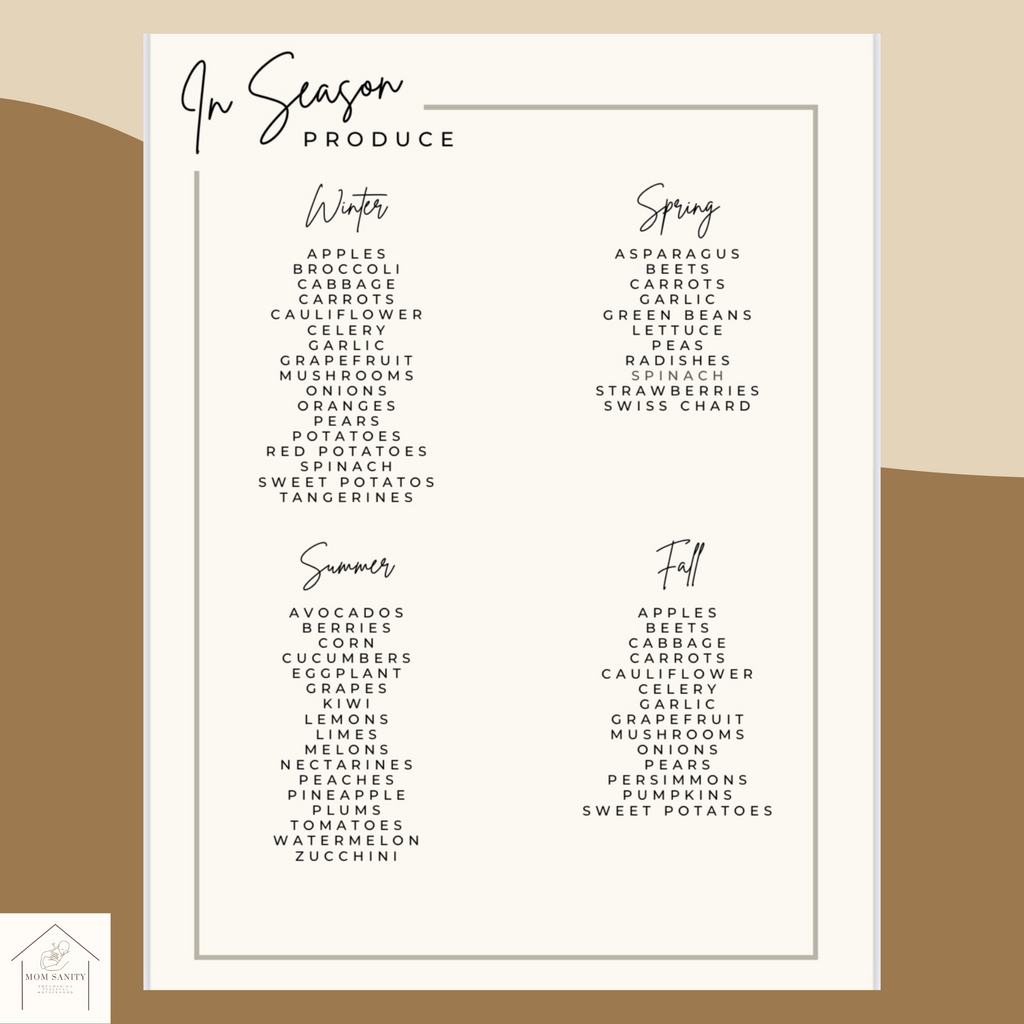 In Season
PRODUCE
Winter
APPLES
BROCCOLI
CABBAGE
CARROTS
CAULIFLOWER
CELERY
GARLIC
GRAPEFRUIT
MUSHROOMS
ONIONS
ORANGES
PEARS
POTATOES
RED POTATOES
SPINACH
SWEET POTATOS
TANGERINES
Spring
ASPARAGUS
BEETS
CARROTS
GARLIC
GREEN BEANS
LETTUCE
PEAS
RADISHES
SPINACH
STRAWBERRIES
SWISS CHARD
Summer
AVOCADOS
BERRIES
CORN
CUCUMBERS
EGGPLANT
GRAPES
KIWI
LEMONS
LIMES
MELONS
NECTARINES
PEACHES
PINEAPPLE
PLUMS
TOMATOES
WATERMELON
ZUCCHINI
Fall
APPLES
BEETS
CABBAGE
CARROTS
CAULIFLOWER
CELERY
GARLIC
GRAPEFRUIT
MUSHROOMS
ONIONS
PEARS
PERSIMMONS
PUMPKINS
SWEET POTATOES
MOM SANITY